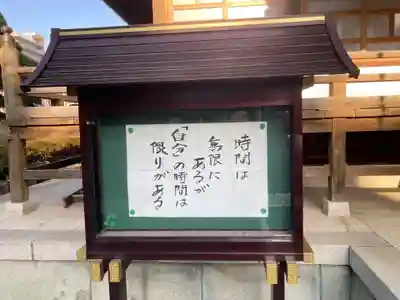 時間は
無限に
あるが
「自分」の時間は
限りがある